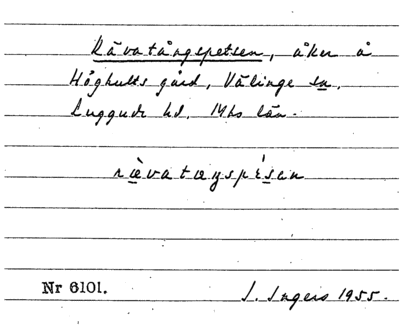 Rävatångspetsen, åker å
Höghults gård, Välinge sn.
Luggude hd. Mhs län.
rævatæŋspésan
Nr 6101.
I. Ingers 1955.